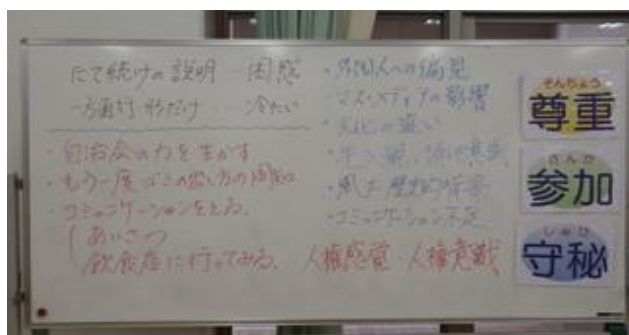 たて続けの説明…困惑
一方通行 形だけ…冷たい
・自治会の力を生かす
・もう一度 ゴミの出し方の周知
・コミュニケーションをとる。
あいさつ
飲食店に行ってみる。
・外国人への偏見
・マスメディアの影響
・文化の違い
・風土 歴史的背景
・コミュニケーション不足
人権感覚・人権意識
そんちょう
尊重
さんか
参加
しゅひ
守秘